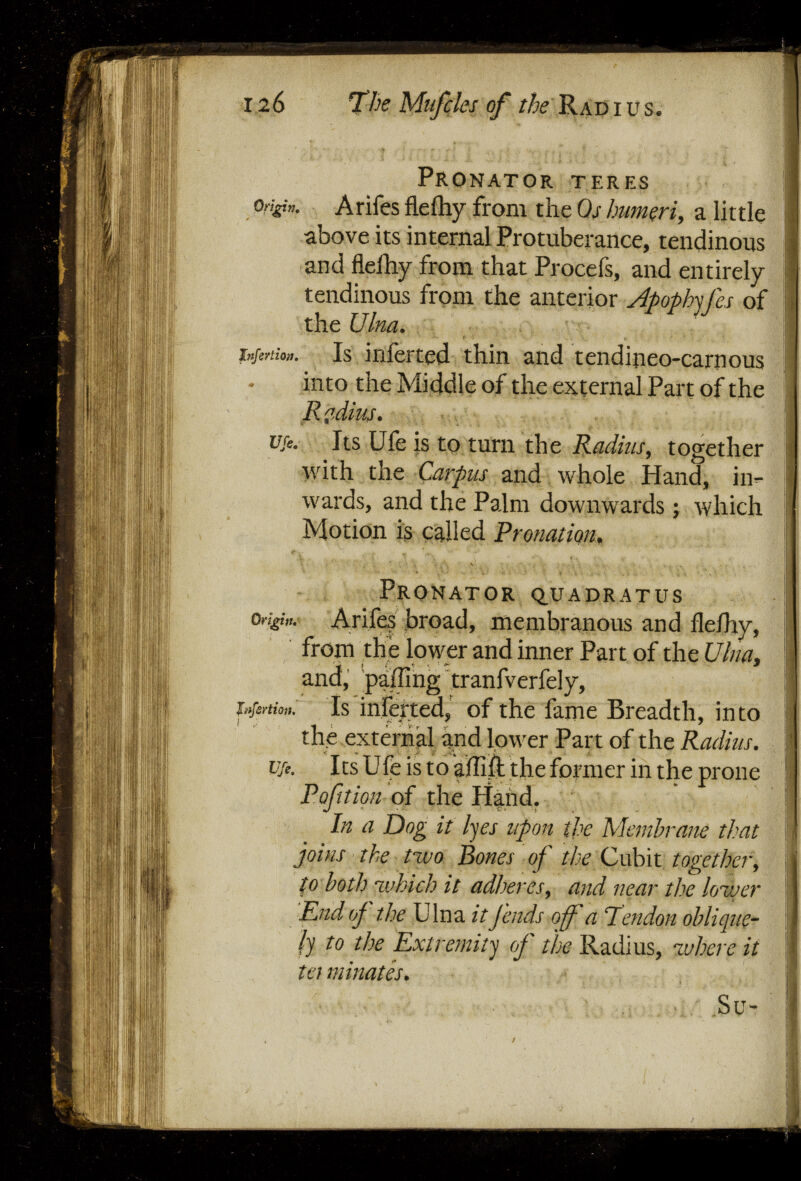 126 The Muſcles of the RADIUS.
PRONATOR TERES
Origin. Ariſes fleſhy from the Os humeri, a little
above its internal Protuberance, tendinous
and fleſhy from that Proceſs, and entirely
tendinous from the anterior Apophyſes of
the Ulna.
Inſertion. Is inſerted thin and tendineo-carnous
into the Middle of the external Part of the
Radius.
Uſe. Its Uſe is to turn the Radius, together
with the Carpus and whole Hand, in-
wards, and the Palm downwards; which
Motion is called Pronation.
PRONATOR QUADRATUS
Origin. Ariſes broad, membranous and fleſhy,
from the lower and inner Part of the Ulna,
and, paſſing tranſverſely,
Inſertion. Is inſerted, of the ſame Breadth, into
the external and lower Part of the Radius.
Uſe. Its Uſe is to aſſiſt the former in the prone
Poſition of the Hand.
In a Dog it lyes upon the Membrane that
joins the two Bones of the Cubit together,
to both which it adheres, and near the lower
End of the Ulna it ſends off a Tendon oblique-
ly to the Extremity of the Radius, where it
terminates.
SU-